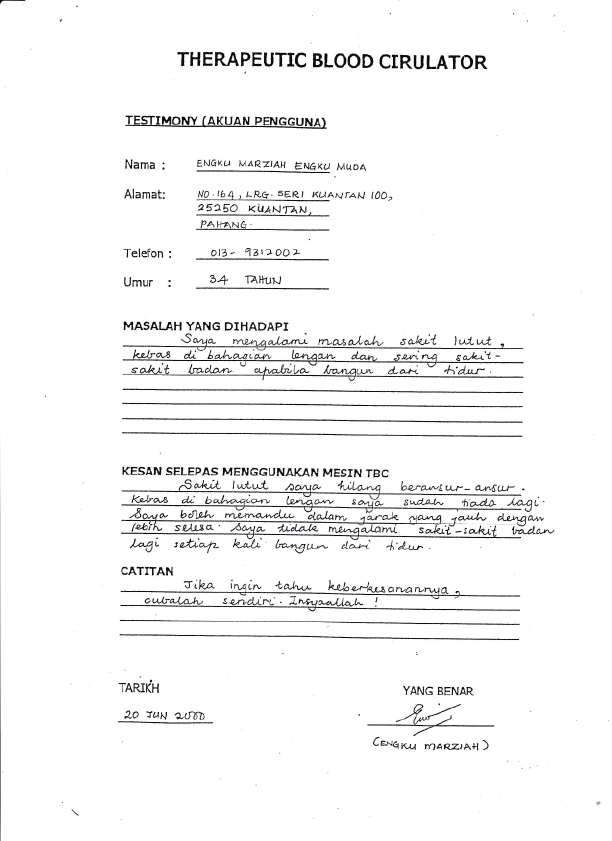 THERAPEUTIC BLOOD CIRULATOR
TESTIMONY (AKUAN PENGGUNA)
Nama : ENGKU MARZIAH ENGKU MUDA
Alamat: NO. 164, LRG. SERI KUANTAN 100,
25250 KUANTAN,
PAHANG.
Telefon : 013- 9312002
Umur : 34 TAHUN
MASALAH YANG DIHADAPI
Saya mengalami masalah sakit lutut,
kebas di bahagian lengan dan sering sakit-
sakit badan apabila bangun dari tidur.
KESAN SELEPAS MENGGUNAKAN MESIN TBC
Sakit lutut saya hilang beransur-ansur.
Kebas di bahagian lengan saya sudah tiada lagi.
Saya boleh memandu dalam jarak yang jauh dengan
lebih selesa. Saya tidak mengalami sakit-sakit badan
lagi setiap kali bangun dari tidur.
CATITAN
Jika ingin tahu keberkesanannya,
cubalah sendiri. Insyaallah !
TARIKH
YANG BENAR
20 JUN 2000
(ENGKU MARZIAH)